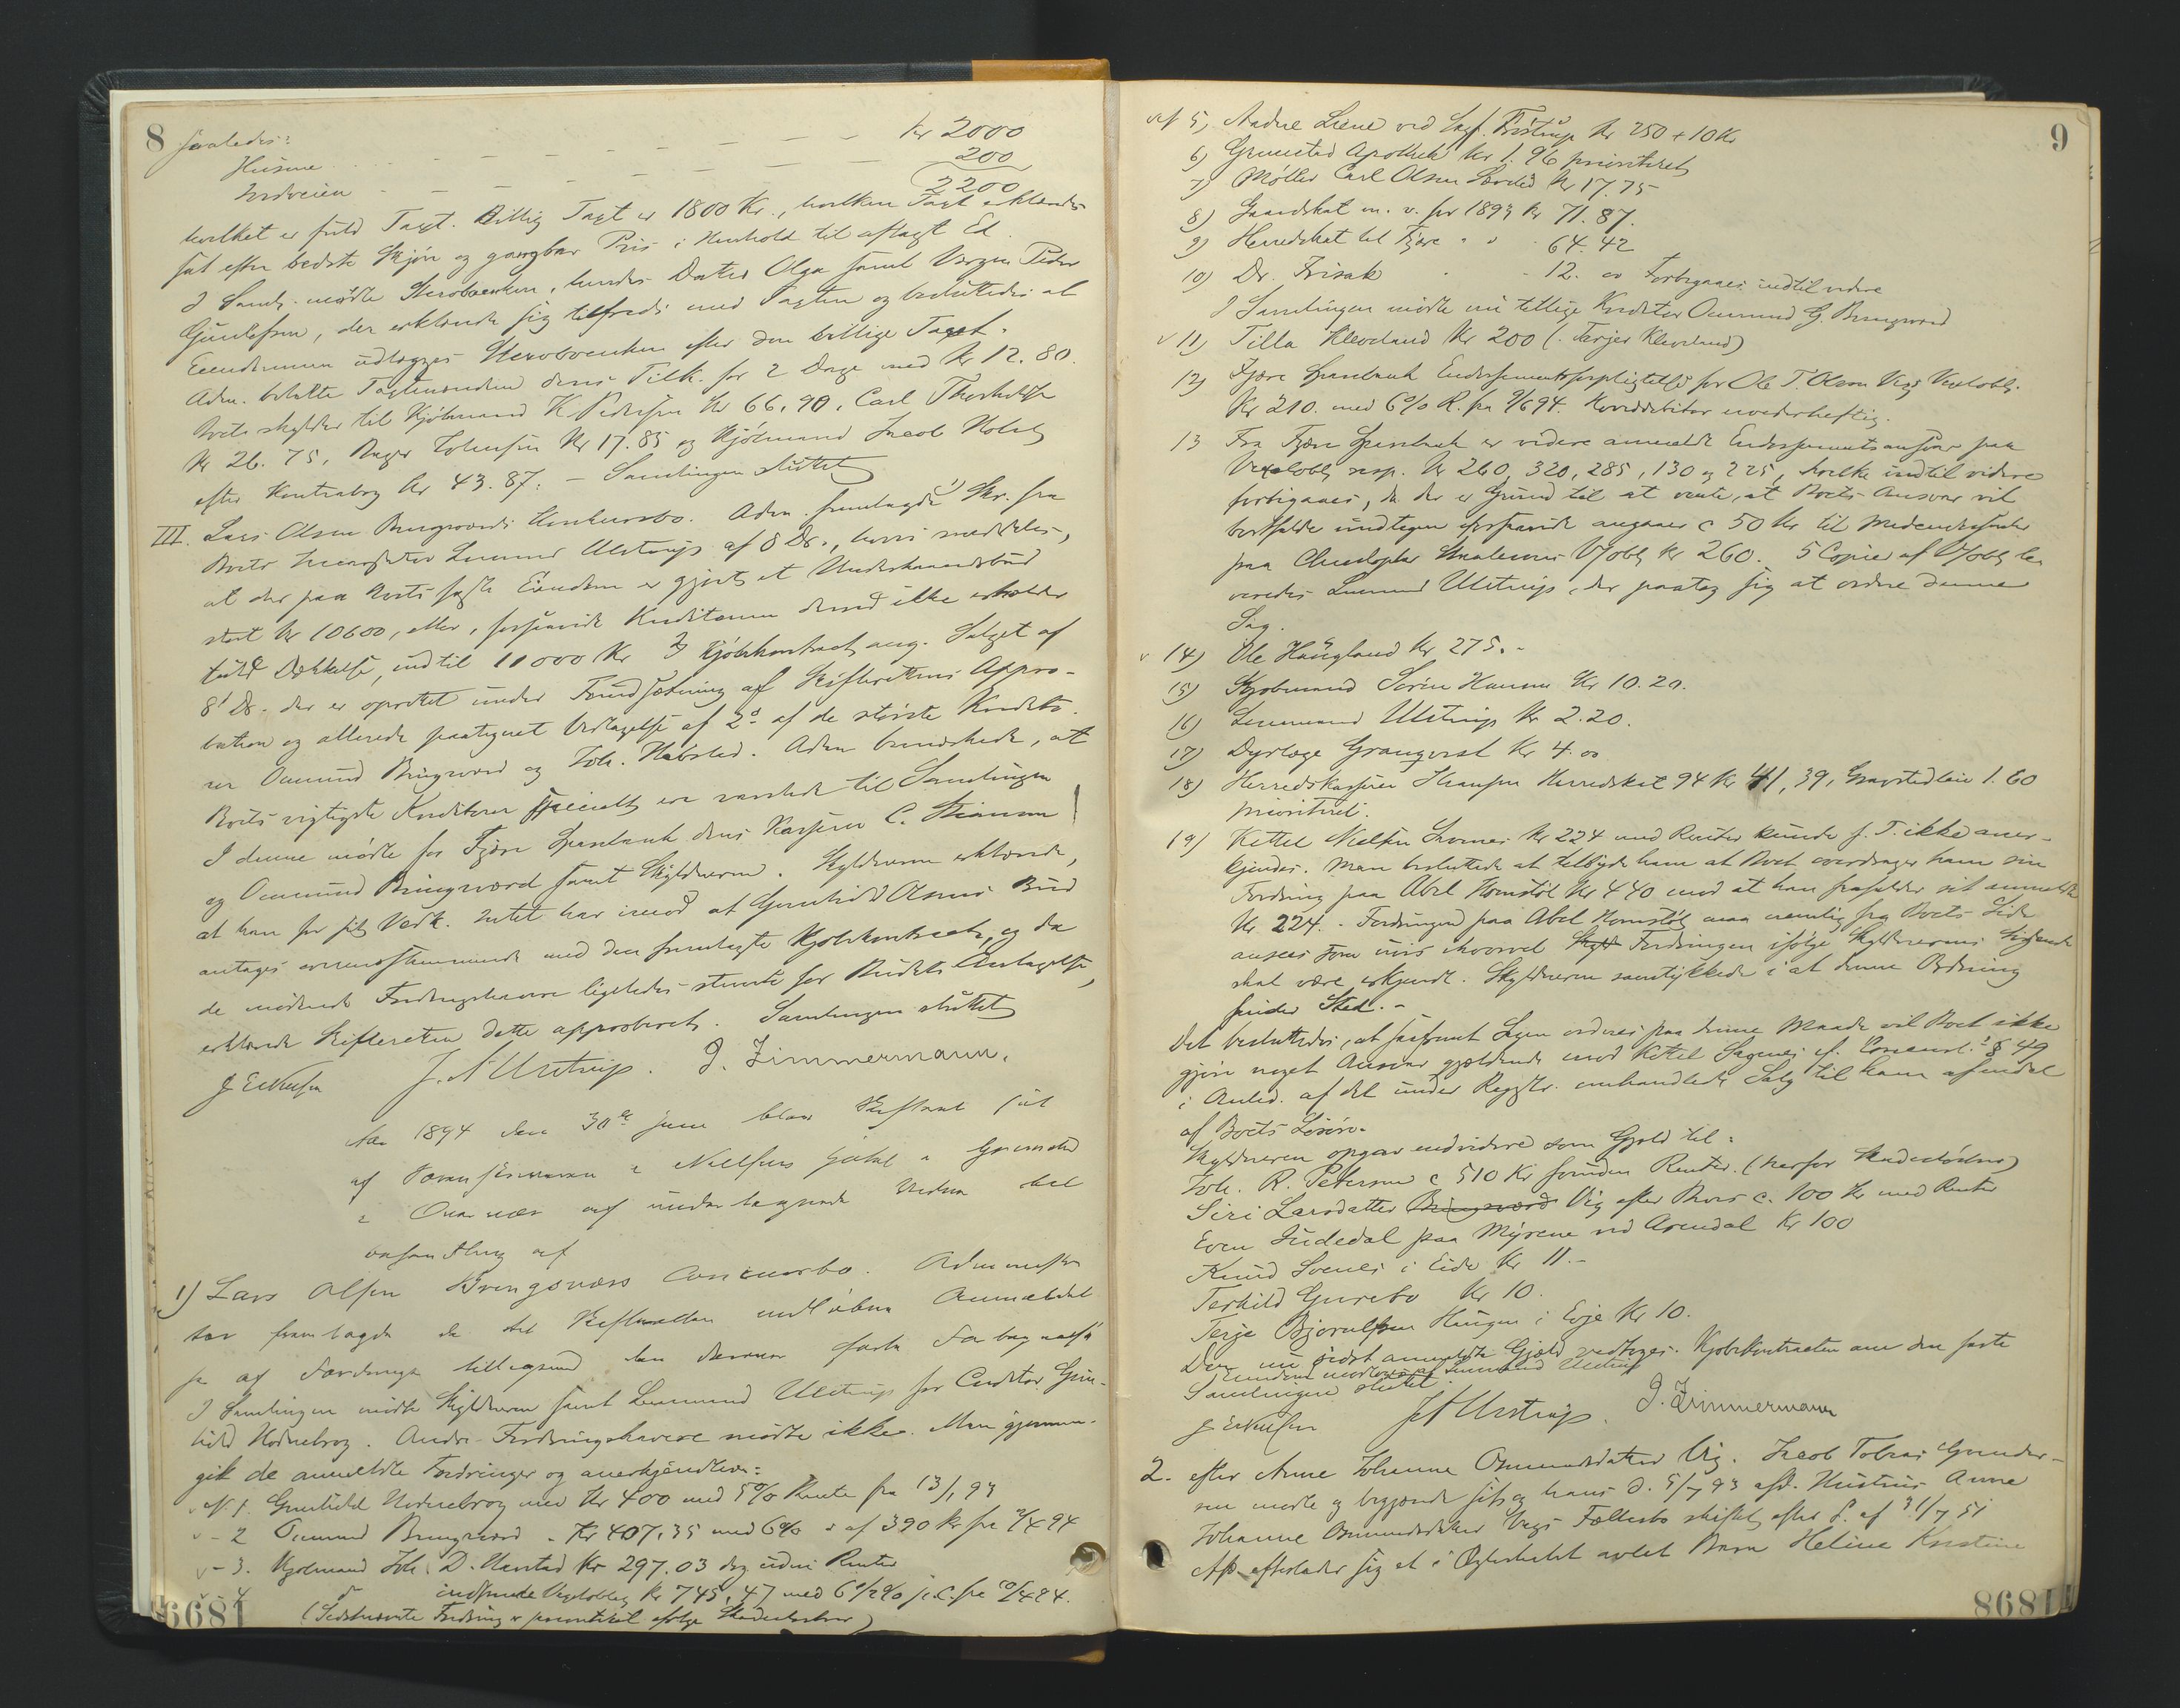 8 saaledes:
Husene - - - - - - - Kr 2000
Jordveien - - - - - - - 200
2200
hvilket er fuld Taxt. Billig Taxt er 1800 Kr., hvilken Taxt erklæredes
sat efter bedste Skjøn og gangbar Pris i Henhold til aflagt Ed.
I Saml. mødte Sterboenken, hendes Datter Olga samt Værgen Peder
Gundersen, der erklærede sig tilfreds med Taxten og besluttedes at
Eiendommen udlægges Sterboenken efter den billige Taxt.
Adm. betalte Taxtmændene deres Tilk. for 2 Dage med Kr 12.80.
Boets skylder til Kjøbmand K. Pedersen Kr 66.90, Carl Thorkelsen
Kr 26.75, Bager Tobiassen Kr 17.85 og Kjøbmand Jacob Holst
efter Kontrabog Kr 43.87. - Samlingen sluttet
III. Lars Olsen Bringsværds Konkursbo. Adm. fremlagde 1) Skr. fra
Boets Inkassator Lensmd Ulstrup af 8 Ds., hvori meddeles,
at der paa Boets faste Eiendom er gjort et Underhaandsbud
stort Kr 10600, eller, forsaavidt Kreditorerne derved ikke erholder
fuld Dækkelse, indtil 11000 Kr. 2) Kjøbekontract ang. Salget af
8 Ds. der er oprettet under Forudsætning af Skifterettens Appro-
bation og allerede paategnet Vedtagelse af 2de af de største Kredito-
rer Aamund Bringsværd og Joh. Habsted. Adm bemærkede, at
Boets vigtigste Kreditorer specielt ere varslede til Samlingen
I denne mødte for Fjære Sparebank dens Kasserer C. Thomsen
og Aamund Bringsværd samt Skyldneren. Skyldneren erklærede,
at han for sit Vedk. intet har imod at Gunhild Olsens Bud
antages overensstemmende med den fremlagte Kjøbekontract, og da
de mødende Fordringshavere ligeledes stemte for Budets Antagelse,
erklærede Skifteretten dette approberet. Samlingen sluttet
J. A. Ulstrup. J. Zimmermann.
Aar 1894 den 30te Juni blev Skifteret sat
af Sorenskriveren i Nielsens Hotel i Grimstad
i Overvær af undertegnede Vidner til
Behandling af
1) Lars Olsen Bringsværs Concursbo. Administra-
tor fremlagde de til Skifteretten indløbne Anmeldel-
ser af Fordringer tilligemed den derover førte Fortegnelse
I Samlingen mødte Skyldneren samt Lensmand Ulstrup for Creditor Gun-
hild Hodnebrog. Andre Fordringshavere mødte ikke. Man gjennem-
gik de anmeldte Fordringer og anerkjendtes:
No 1. Gunhild Hodnebrog med Kr 400 med 5% Rente fra 13/1 93
- 2 Aamund Bringsværd - Kr 407,35 med 6% af 390 Kr fra 94
- 3. Kjøbmand Joh. D. Hanstad Kr 297.03 dog uden Renter
4 do indførte Vexelobl. Kr 745,47 med 6% p. C. fra 94.
(Sidstnævnte Fordring er prioriteret ifølge Skadesløsbrev)
16681
9
No 5) Andre Liene ved Sagf. Fristrup Kr 250 + 10 Kr
6) Grimstad Apothek Kr 1.96 prioriteret
7) Møller Carl Olsen Kr 17.75
8) Grundskat m. v. for 1893 Kr 71.87.
9) Herredskat til Fjære " " 64.42
10) Dr. Frisak - 12. 00 Forbigaaes indtil videre
I Samlingen mødte nu tillige Kreditor Aamund G. Bringsværd
11) Tilla Kleveland Kr 200 (Terjes Klevland)
12) Fjære Sparebank Endossementsforpligtelse for Ole T. Olsen Vigs Vexelobl.
Kr 210. med 6% R. fra 9/6 94. Hoveddebitor uvederheftig.
13 Fra Fjære Sparebank er videre anmeldt Endossementsansvar paa
Vexelobl. resp. Kr 260, 320, 285, 130 og 225, hvilke indtil videre
forbigaaes, da der er Grund til at vente, at Boets Ansvar vil
bortfalde undtagen forsaavidt angaaer c 50 Kr til Medendossenter
paa Christopher V/obl. Kr 260. 5 Copier af V/obl. le-
veredes Lensmd Ulstrup, der paatog sig at ordne denne
Sag.
14) Ole Haugland Kr 275.-
15) Kjøbmand Sørin Hansen Kr 10.20.
16) Lensmand Ulstrup Kr 2.20.
17) Dyrlæge Granqvist Kr 4.00
18) Herredskasserer Hansen Herredskat 94 Kr 41,39, Gravstedleie 1.60
prioriteret.
19) Kittel Nielsen Kr 224 med Renter kunde f. T. ikke aner-
kjendes. Man besluttede at tilbyde ham at Boet overdrager ham sin
Fordring paa Abel Homstøl Kr 440 mod at han frafalder sit anmeldte
Kr. 224. - Fordringen paa Abel Homstøl maa nemlig fra Boets Side
ansees som uvis ihvorvel Fordringen ifølge Skyldnerens Sigende
skal være erkjendt. Skyldneren samtykkede i at denne Ordning
finder Sted. -
Det besluttedes, at saafremt Sagen ordnes paa denne Maade vil Boet ikke
gjøre noget Ansvar gjældende mod Kittel cf. Concursl.s § 49
i Anled. af det under Registr. omhandlede Salg til ham af endel
af Boets Løsøre.
Skyldneren opgav endvidere som Gjæld til:
Joh. R. Petersen c 510 Kr foruden Renter. (herfor Skadesløsbrev)
Siri Larsdatter Bringsværd Vig efter Bevis c. 100 Kr med Renter
Even Sudedal paa Myrene ved Arendal Kr 100
Knud Svenes i Eide Kr 11.-
Terkild Gurebo Kr 10.
Terje Bjorulfsen Haugen i Evje Kr 10.
Den nu sidst anmeldte Gjæld vedtoges. Kjøbekontracten om den faste
Eiendom modtoges af Lensmand Ulstrup
Samlingen sluttet.
J. A. Ulstrup. J. Zimmermann
2. efter Anne Johanne Osmundsdatter Vig. Jacob Tobias Gunder-
sen mødte og begjærede sit og hans d. 5/7 93 afd. Hustrus Anne
Johanne Osmundsdatter Vigs Fællesbo skiftet efter L. af 31/7 51
Afd. efterlader sig et i Ægteskabet avlet Barn Heline Kristine
86811